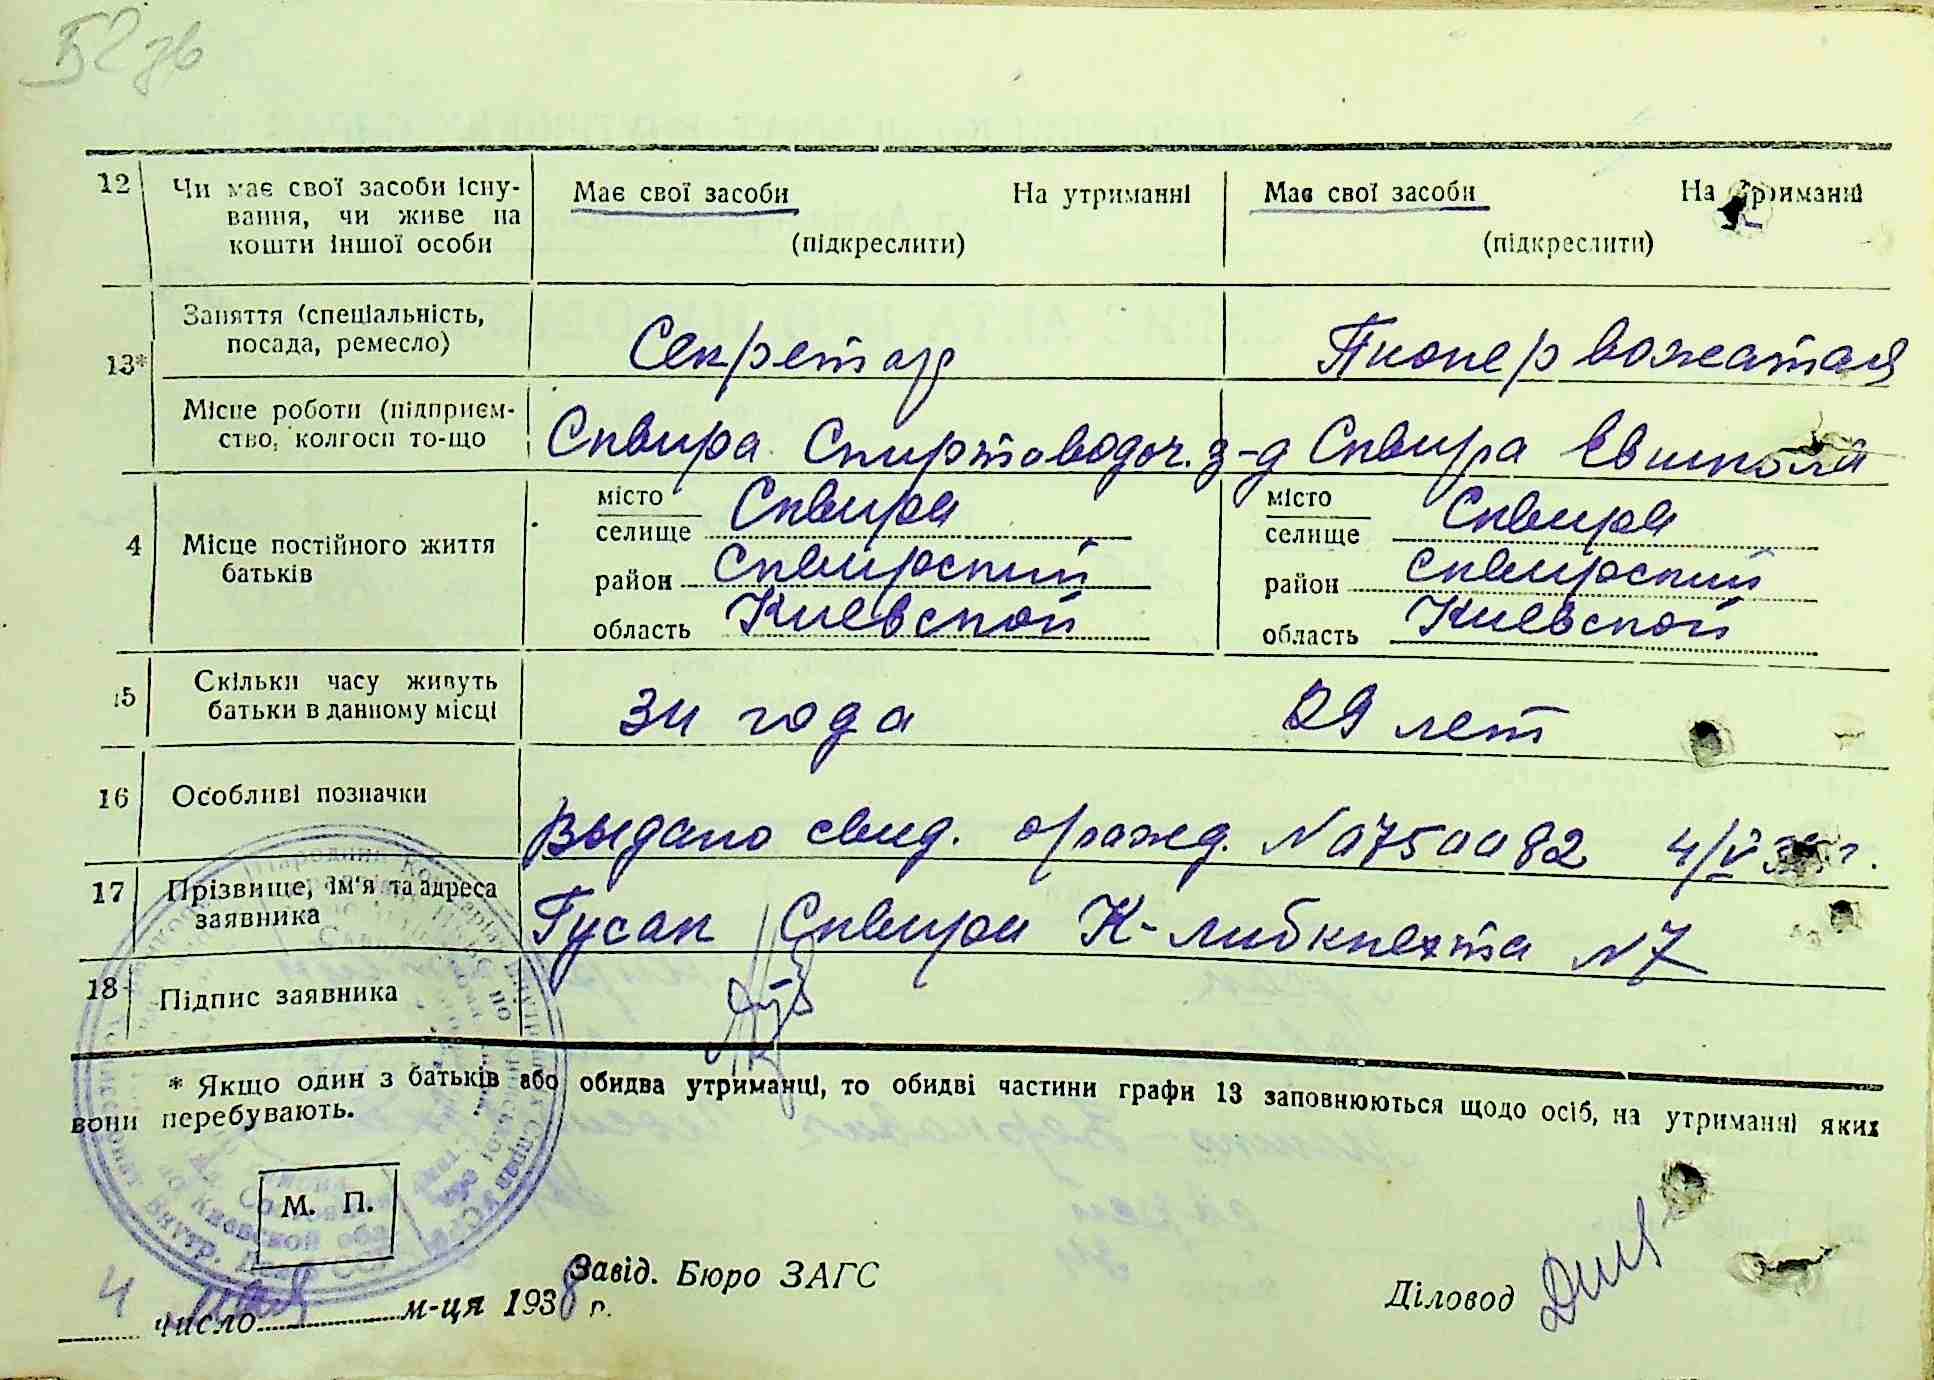 52 зв
12 Чи має свої засоби існу-
вання, чи живе на
кошти іншої особи
Має свої засоби На утриманні
(підкреслити)
Має свої засоби На утриманні
(підкреслити)
13* Заняття (спеціальність,
посада, ремесло)
Секретар
Пионер вожатая
Місце роботи (підприєм-
ство, колгосп то-що
Сквира Спиртоводоч. з-д
Сквира Евшкола
4 Місце постійного життя
батьків
місто
селище Сквира
район Сквирский
область Киевской
місто
селище Сквира
район Сквирский
область Киевской
15 Скільки часу живуть
батьки в данному місці
34 года
29 лет
16 Особливі позначки
Выдано свид. о рожд. № 4/V 38 г.
17 Прізвище, ім'я та адреса
заявника
Гусак Сквира К-Либкнехта №7
18 Підпис заявника
* Якщо один з батьків або обидва утриманці, то обидві частини графи 13 заповнюються щодо осіб, на утриманні яких
вони перебувають.
М. П.
Завід. Бюро ЗАГС
Діловод
4 число мая м-ця 1938 р.